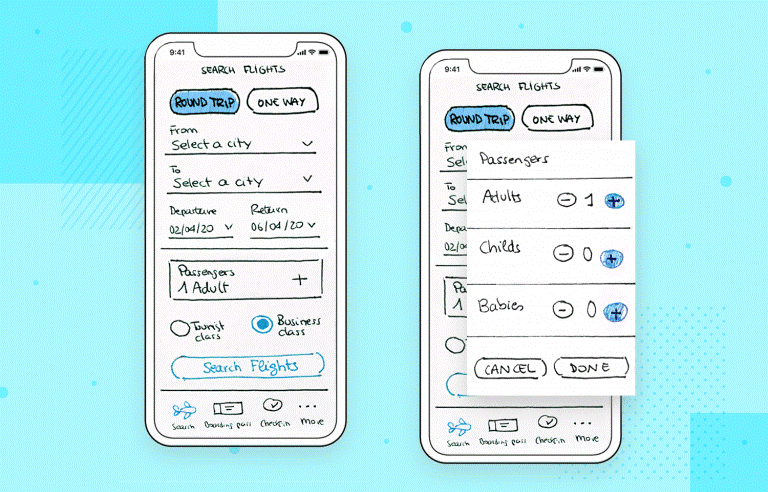 9:41
SEARCH FLIGHTS
ROUND TRIP
ONE WAY
From
Select a city
To
Select a city
Departure
Return
02/04/20
06/04/20
Passengers
1 Adult
Tourist
class
Business
class
Search Flights
Search
Boarding pass
Check-in
More
9:41
SEARCH FLIGHTS
ROUND TRIP
ONE WAY
From
Sel
To
Sel
Depa
02/04
Pa
1
Passengers
Adults
1
Childs
0
Babies
0
CANCEL
DONE
Search
Boarding pass
Check-in
More